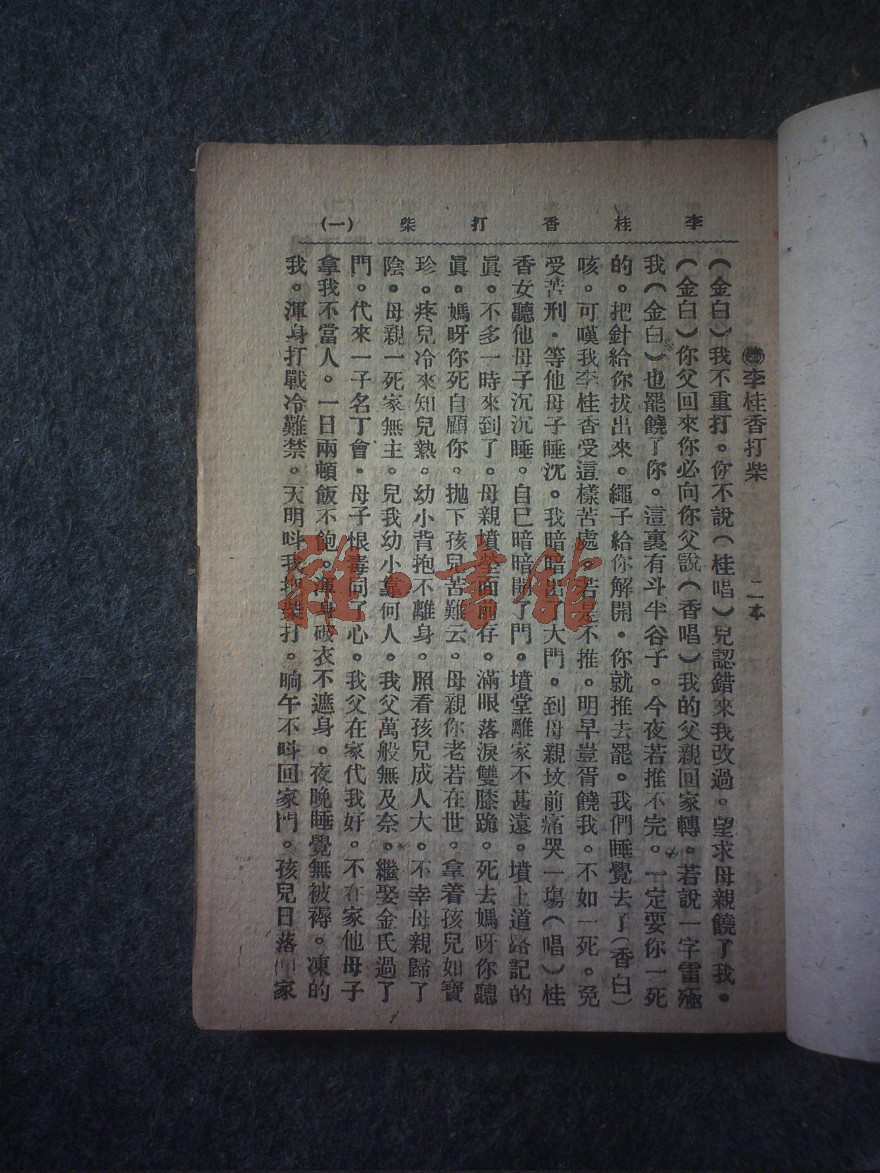 李桂香打柴(一)
李桂香打柴 二本
(金白)我不重打。你不說(桂唱)兒認錯來我改過。望求母親饒了我。
(金白)你父回來你必向你父說(香唱)我的父親回家轉。若說一字雷殛
我(金白)也罷饒了你。這裏有斗半谷子。今夜若推不完。一定要你一死
的。把針給你拔出來。繩子給你解開。你就推去罷。我們睡覺去了(香白)
咳。可嘆我李桂香受這樣苦處。若是不推。明早豈肯饒我。不如一死。免
受苦刑。等他母子睡沉。我暗暗出了大門。到母親坟前痛哭一塲(唱)桂
香女聽他母子沉沉睡。自己暗暗開了門。墳堂離家不甚遠。墳上道路記的
眞。不多一時來到了。母親墳塋面前存。滿眼落淚雙膝跪。死去媽呀你聽
眞。媽呀你死自顧你。抛下孩兒苦難云。母親你老若在世。拿着孩兒如寳
珍。疼兒冷來知兒熱。幼小背抱不離身。照看孩兒成人大。不幸母親歸了
陰。母親一死家無主。兒我幼小靠何人。我父萬般無及奈。繼娶金氏過了
門。代來一子名丁會。母子恨毒同了心。我父在家代我好。不在家他母子
拿我不當人。一日兩頓飯不飽。渾身破衣不遮身。夜晚睡覺無被褥。凍的
我。渾身打戰冷難禁。天明呌我把柴打。晌午不呌回家門。孩兒日落回家
雜·書館